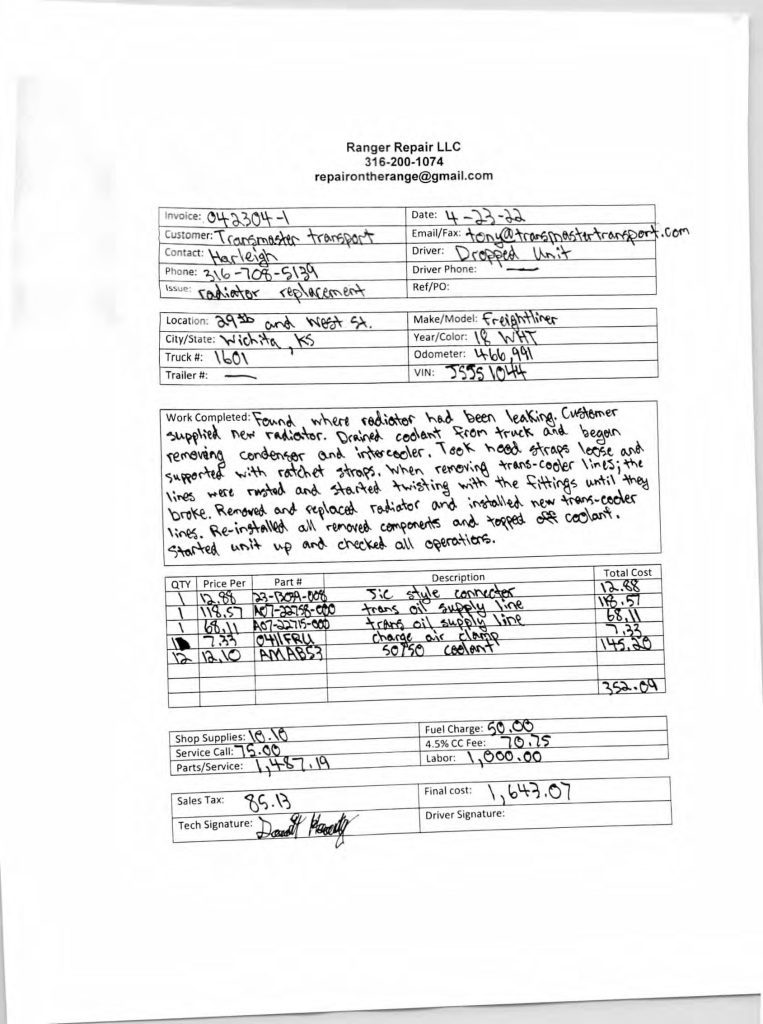 Ranger Repair LLC
316-200-1074
repairontherange@gmail.com
Invoice: 042304-1 Date: 4-23-22
Customer: Transmaster transport Email/Fax: tony@transmastertransport.com
Contact: Harleigh Driver: Dropped Unit
Phone: 316-708-5139 Driver Phone: —
Issue: radiator replacement Ref/PO:
Location: 29th and West St. Make/Model: Freightliner
City/State: Wichita, KS Year/Color: 18 WHT
Truck #: 1601 Odometer: 466,991
Trailer #: — VIN: JS551044
Work Completed: Found where radiator had been leaking. Customer
supplied new radiator. Drained coolant from truck and began
removing condensor and intercooler. Took hood straps loose and
supported with ratchet straps. When removing trans-cooler lines; the
lines were rusted and started twisting with the fittings until they
broke. Removed and replaced radiator and installed new trans-cooler
lines. Re-installed all removed components and topped off coolant.
Started unit up and checked all operations.
QTY Price Per Part # Description Total Cost
1 12.88 23-13OA-008 Jic style connector 12.88
1 118.57 A07-22758-000 trans oil supply line 118.57
1 68.11 A07-22715-000 trans oil supply line 68.11
1 7.33 0411FRU charge air clamp 7.33
12 12.10 AMAB53 50/50 coolant 145.20
352.09
Shop Supplies: 10.10 Fuel Charge: 50.00
Service Call: 75.00 4.5% CC Fee: 70.75
Parts/Service: 1,487.19 Labor: 1,000.00
Sales Tax: 85.13 Final cost: 1,643.07
Tech Signature: Driver Signature: